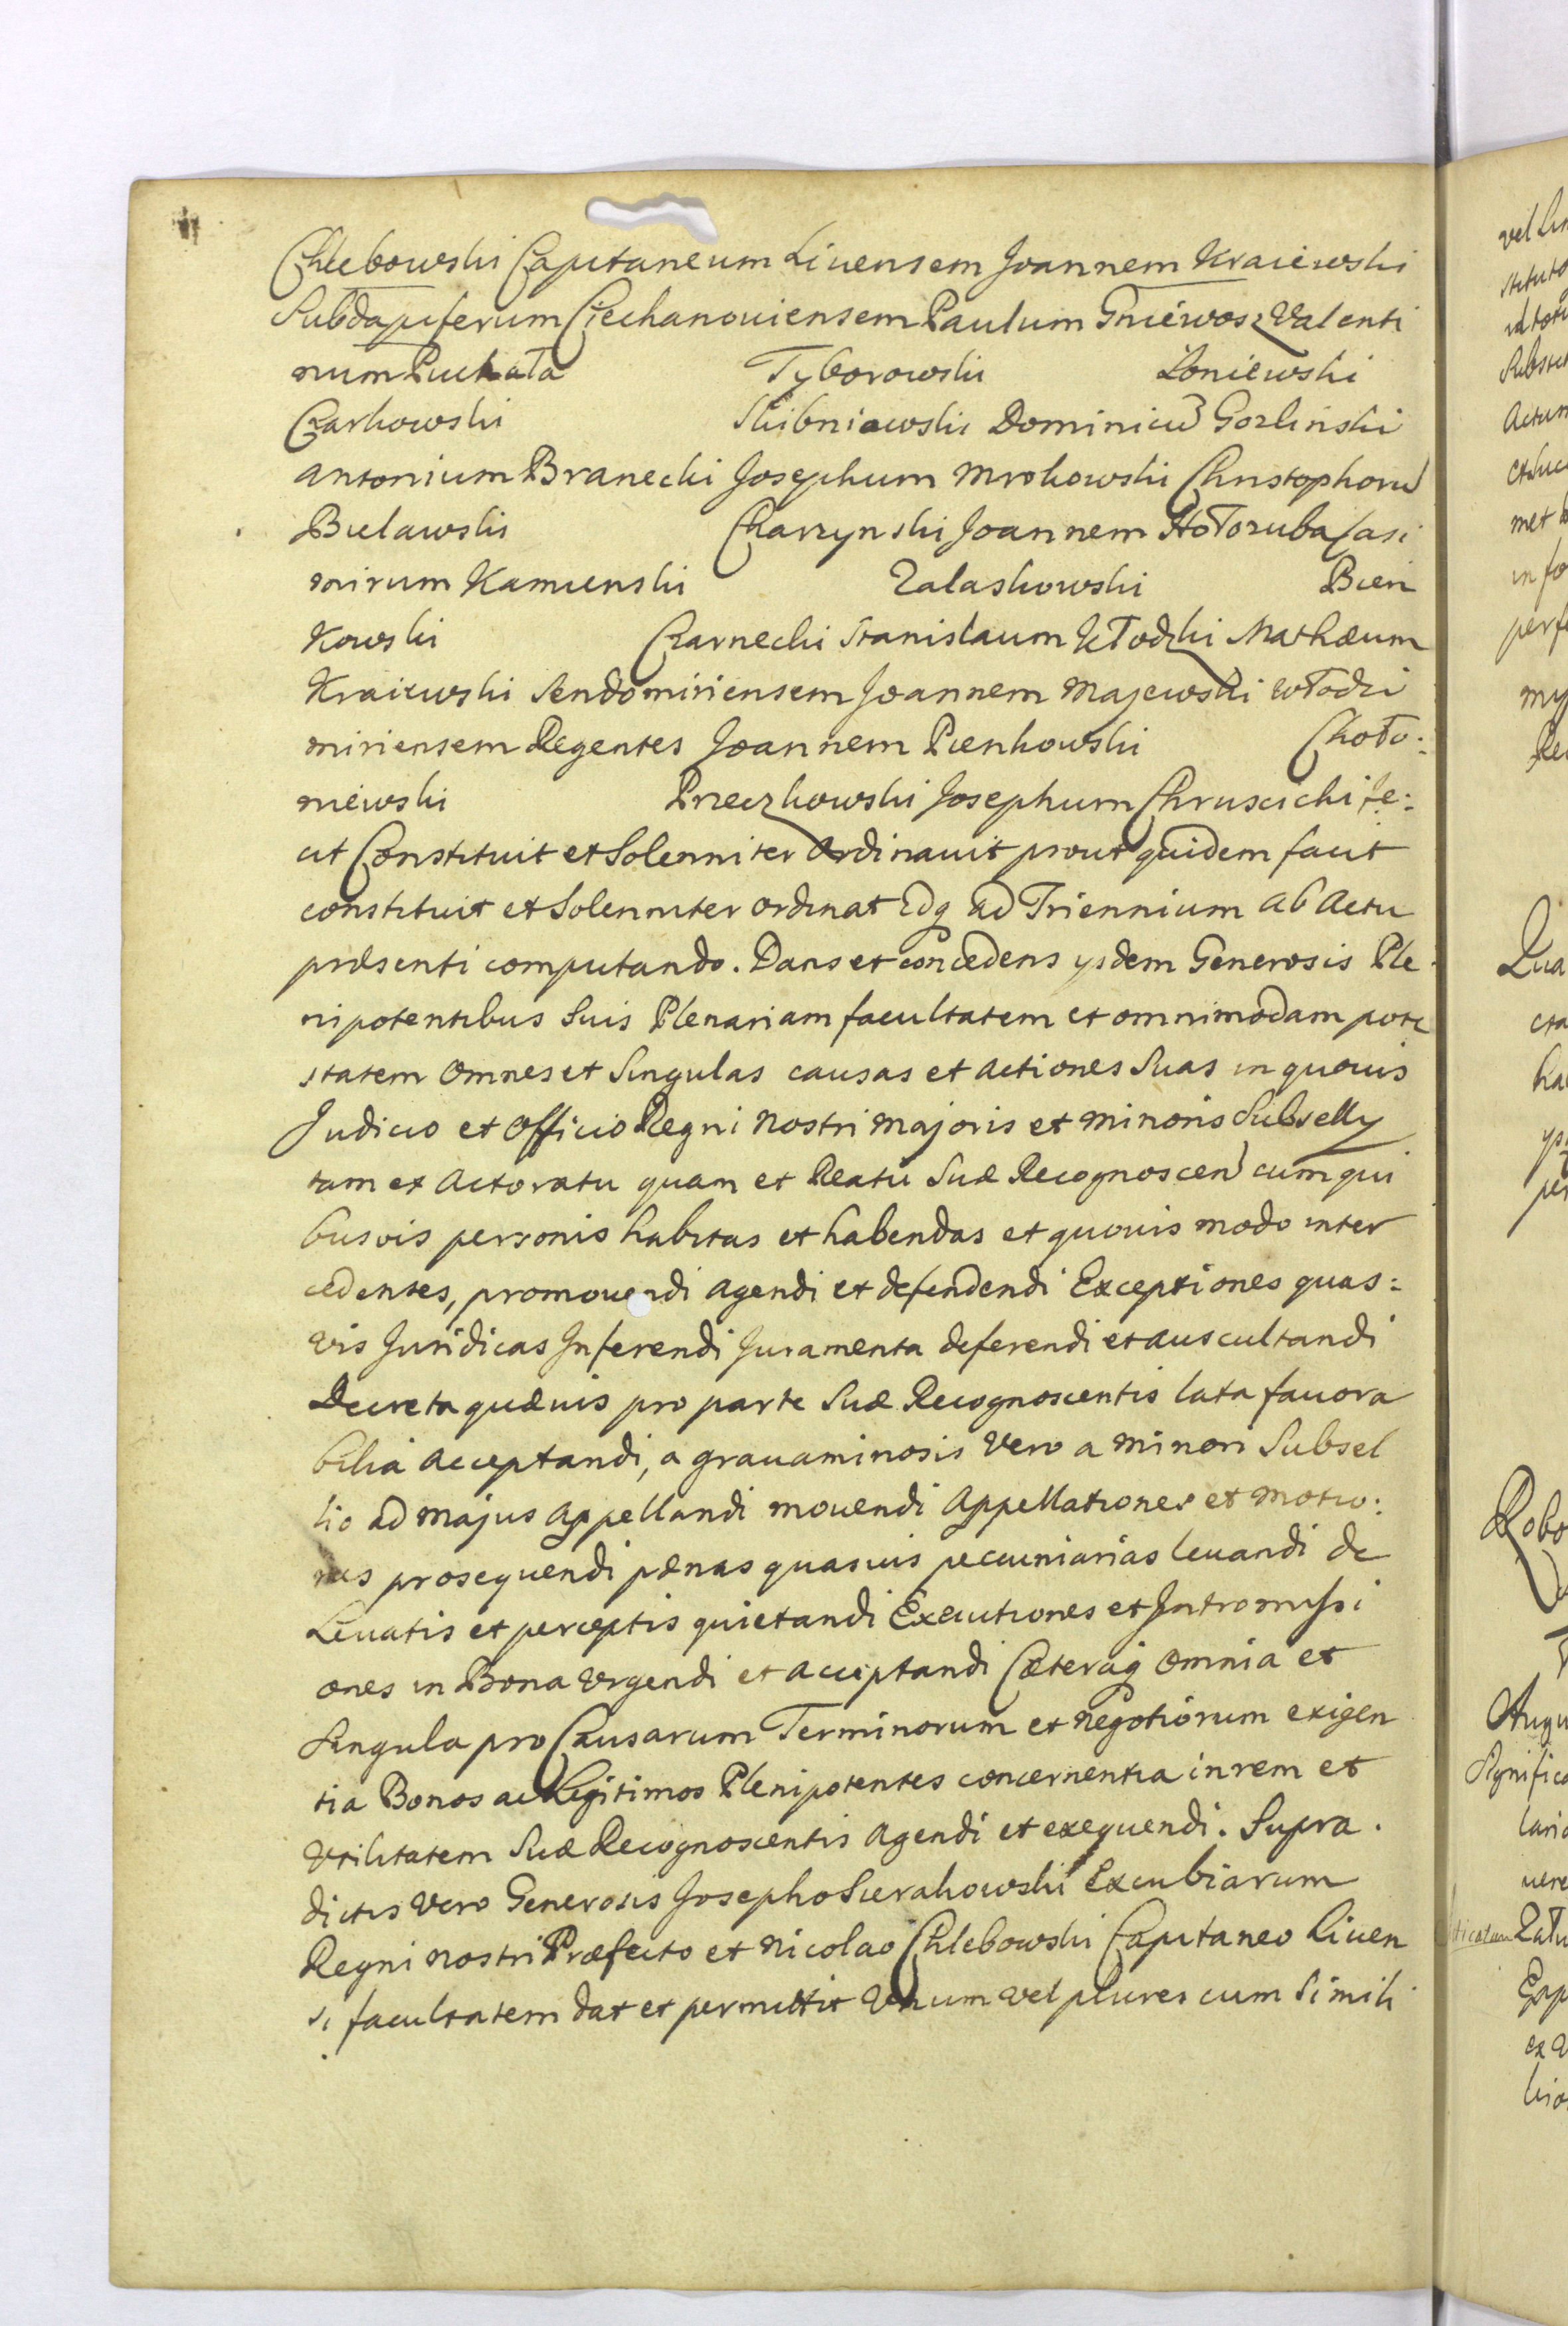 Chlebowski Capitaneum Livensem Joannem Kraiewski
Subdapiferum Ciechanoviensem Paulum Gniewosz Valenti
num Puchała Tyborowski Łoniewski
Czarkowski Skibniewski Dominicū Gozlinski
Antonium Branecki Josephum Mrokowski Christophorū
Bielawski Charzynski Joannem Hołozuba Casi
mirum Kamienski Zalaskowski Bien
kowski Czarnecki Stanislaum Kłodzki Mathæum
Kraiewski Sendomiriensem Joannem Majewski włodzi
miriensem Regentes Joannem Pienkowski Choło:
niewski Przeczkowski Josephum Chruscicki fe:
cit Constituit et Solenniter Ordinavit prout quidem facit
constituit et Solenniter ordinat Idq ad Triennium ab Actu
præsenti computando. Dans et concedens ysdem Generosis Ple
nipotentibus Suis Plenariam facultatem et omnimodam pote
statem Omnes et Singulas causas et actiones Suas in quovis
Judicio et Officio Regni Nostri Majoris et Minoris Subselly
tam ex Actoratu quam et Reatu Suæ Recognoscen cum qui
busvis personis habitas et habendas et quovis modo inter
cedentes, promovendi agendi et defendendi Exceptiones quas:
vis Juridicas Inferendi Juramenta deferendi et auscultandi
Decreta quævis pro parte Suæ Recognoscentis lata favora
bilia acceptandi, a gravaminosis Vero a Minori Subsel
lio ad Majus Appellandi movendi Appellationes et motio:
nes prosequendi pænas quasvis pecuniarias levandi de
Levatis et perceptis quietandi Executiones et Intromissi
ones in Bona Urgendi et acceptandi Cæteraq Omnia et
Singula pro Causarum Terminorum et Negotiorum exigen
tia Bonos ac Legitimos Plenipotentes concernentia in rem et
Utilitatem Suæ Recognoscentis Agendi et exequendi. Supra.
dictis Vero Generosis Josepho Sierakowski Excubiarum
Regni Nostri Præfecto et Nicolao Chlebowski Capitaneo Liven
si facultatem dat et permittit Unum vel plures cum Simili